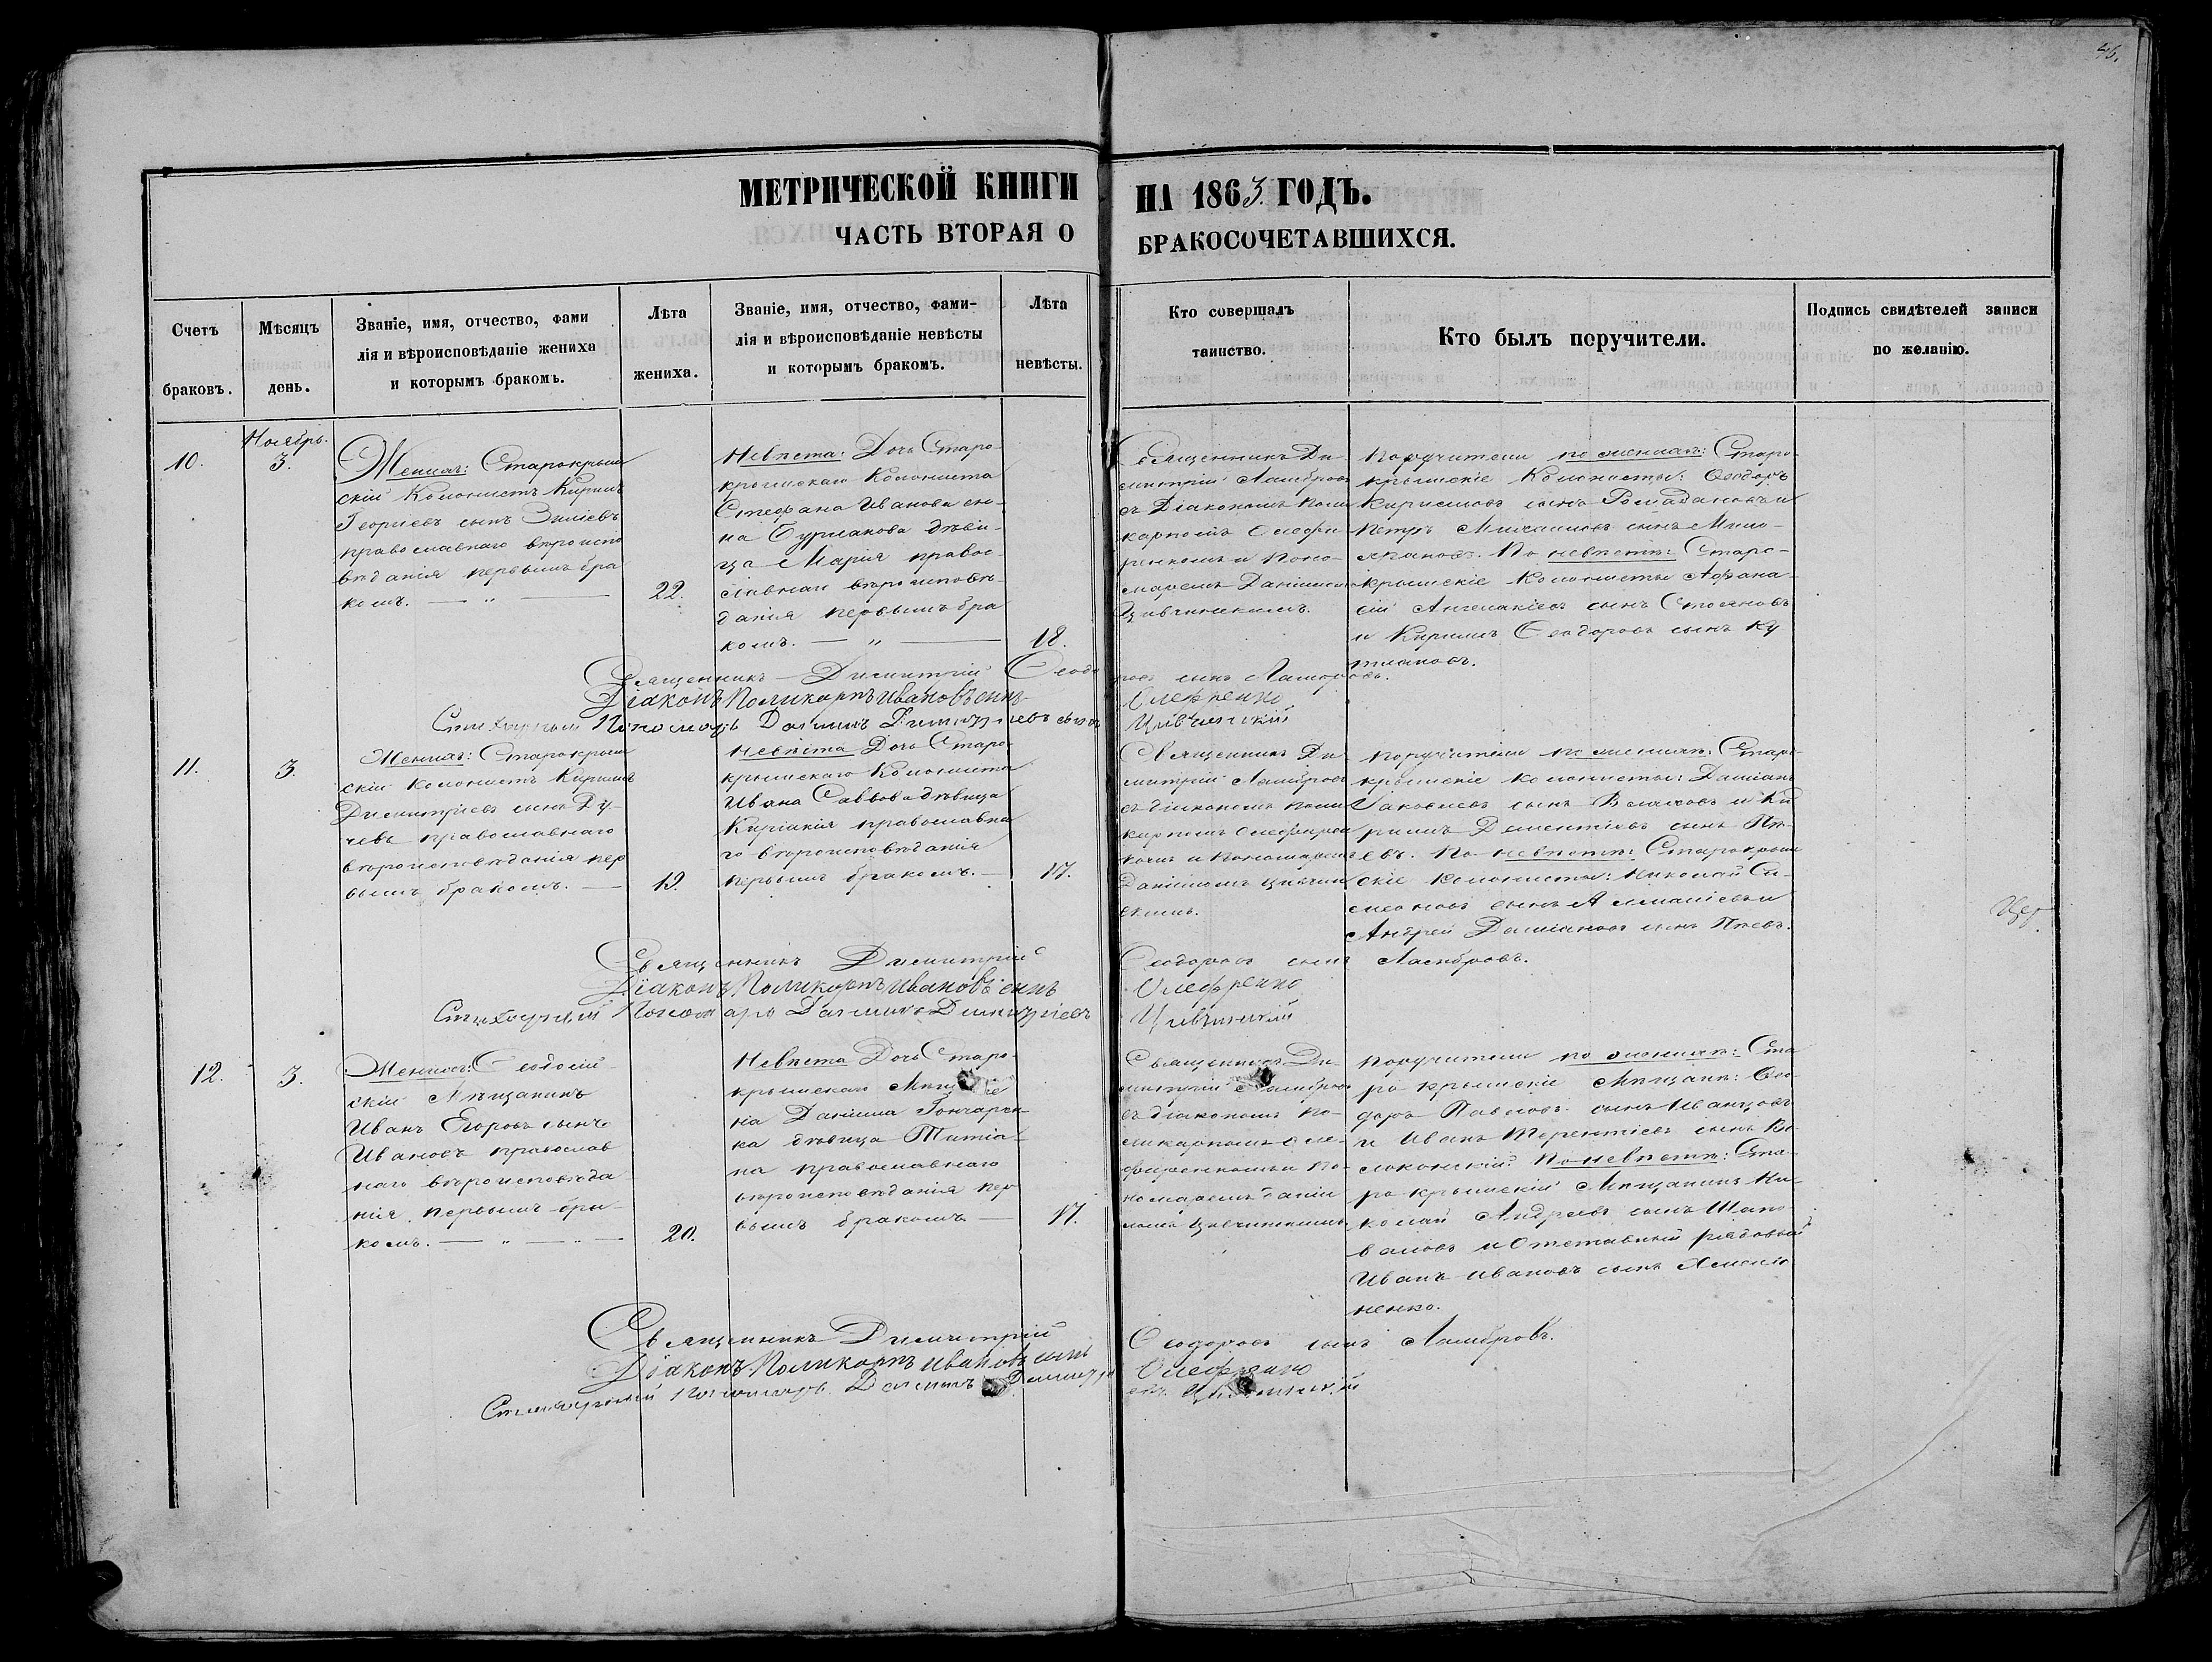 46.
МЕТРИЧЕСКОЙ КНИГИ НА 1863. ГОДЪ.
ЧАСТЬ ВТОРАЯ О БРАКОСОЧЕТАВШИХСЯ.
Счетъ браковъ.
Мѣсяцъ день.
Званіе, имя, отчество, фами
лія и вѣроисповѣданіе жениха
и которымъ бракомъ.
Лѣта жениха.
Званіе, имя, отчество, фами-
лія и вѣроисповѣданіе невѣсты
и которымъ бракомъ.
Лѣта невѣсты.
Кто совершалъ
таинство.
Кто былъ поручители.
Подпись свидѣтелей записи
по желанію.
10.
Ноябрь.
3.
Женихъ: Старокрым
скій Колонистъ Кирилъ
Георгіевъ сынъ
православнаго вѣроиспо
вѣданія первымъ бра
комъ. — " —
22.
Невѣста: Дочь Старо-
крымскаго Колониста
Стефана Иванова сы-
на Бурлакова дѣви-
ца Марія правос-
лавнаго вѣроисповѣ-
данія первымъ бра
комъ. — " —
18.
Священникъ Ди-
митрій Ламбровъ
съ Діакономъ Поли
карпомъ Олефи
ренкомъ и Поно-
маремъ Даніиломъ
Цивчинскимъ.
Поручители по женихѣ: Старо-
крымскіе Колонисты: Ѳеодоръ
Кириловъ сынъ и
Петръ Михаиловъ сынъ
По невѣстѣ: Старо-
крымскіе Колонисты Афана-
сій сынъ Стояновъ
и Кирилъ Ѳеодоровъ сынъ
Священникъ Димитрій Ѳеодо ровъ сынъ Ламбровъ.
Діаконъ Поликарпъ Ивановъ сынъ Олефренко
Стихарный Пономарь Даніилъ Димитріевъ сынъ Цивчинскій
11.
3.
Женихъ: Старокрым
скій Колонистъ Кирилъ
Димитріевъ сынъ Ду-
чевъ православнаго
вѣроисповѣданія пер
вымъ бракомъ. —
19.
Невѣста Дочь Старо-
крымскаго Колониста
Ивана Саввова дѣвица
Киріакія православна
го вѣроисповѣданія
первымъ бракомъ. —
17.
Священникъ Ди-
митрій Ламбровъ
съ діакономъ Поли
карпомъ Олефирен
комъ и Пономаремъ
Даніиломъ Цивчин
скимъ.
Поручители по женихѣ: Старо-
крымскіе колонисты: Даміанъ
Іаковлевъ сынъ и Ки
рилъ Дементіевъ сынъ
По невѣстѣ: Старокрым
скіе колонисты: Николай Си-
меоновъ сынъ и
Андрей Даміановъ сынъ
Священникъ Димитрій Ѳеодоровъ сынъ Ламбровъ.
Діаконъ Поликарпъ Ивановъ сынъ Олефренко
Стихарный Пономарь Даніилъ Димитріевъ Цивчинскій
12.
3.
Женихъ: Ѳеодосій
скій Мѣщанинъ
Иванъ Егоровъ сынъ
Ивановъ православ
наго вѣроисповѣда
нія первымъ бра-
комъ. — " — " —
20.
Невѣста Дочь Старо-
крымскаго
на Даніила Гончарен-
ка дѣвица Татіа-
на православнаго
вѣроисповѣданія пер
вымъ бракомъ —
17.
Священникъ Ди-
митрій Ламбровъ
съ діакономъ По-
ликарпомъ Оле-
фиренкомъ и По-
номаремъ Дании
ломъ Цивчинскимъ
Поручители по женихѣ: Ста
ро крымскіе Мѣщане: Ѳео-
доръ Павловъ сынъ Иванцовъ
и Иванъ Терентіевъ сынъ
По невѣстѣ: Ста-
ро крымскій Мѣщанинъ Ни-
колай Андреевъ сынъ Шапо-
валовъ и Отставный рядовый
Иванъ Ивановъ сынъ
ненко.
Священникъ Димитрій Ѳеодоровъ сынъ Ламбровъ.
Діаконъ Поликарпъ Ивановъ сынъ Олефренко
Стихарный Пономарь Даніилъ Димитріевъ Цивчинскій